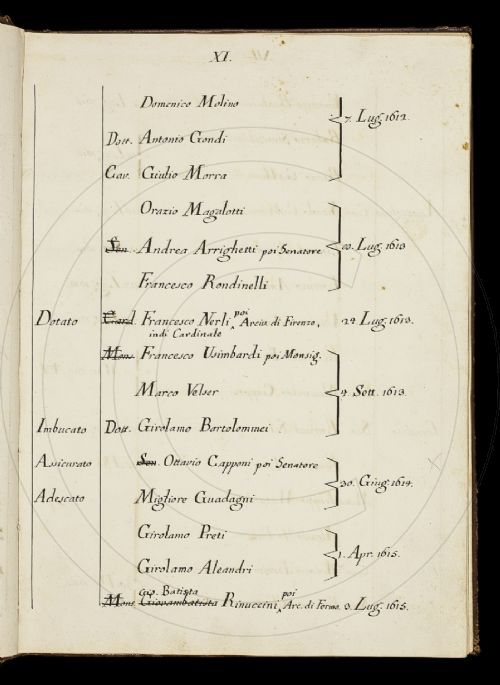 XI.
Domenico Molino
Dott. Antonio Gondi 7. Lug. 1612.
Cav. Giulio Morra
Orazio Magalotti
Sen. Andrea Arrighetti poi Senatore Lug. 1613
Francesco Rondinelli
Dotato Card. Francesco Nerli poi Arciv. di Firenze, 24 Lug. 1613.
indi Cardinale
Mons. Francesco Usimbardi poi Monsig.
Marco Velser Sett. 1613.
Imbucato Dott. Girolamo Bartolommei
Assicurato Sen. Ottavio Capponi poi Senatore
30. Giug. 1614.
Adescato Migliore Guadagni
Girolamo Preti
1. Apr. 1615.
Girolamo Aleandri
Gio. Batista poi
Mons. Giovambatista Rinuccini, Arc. di Fermo. 3. Lug. 1615.